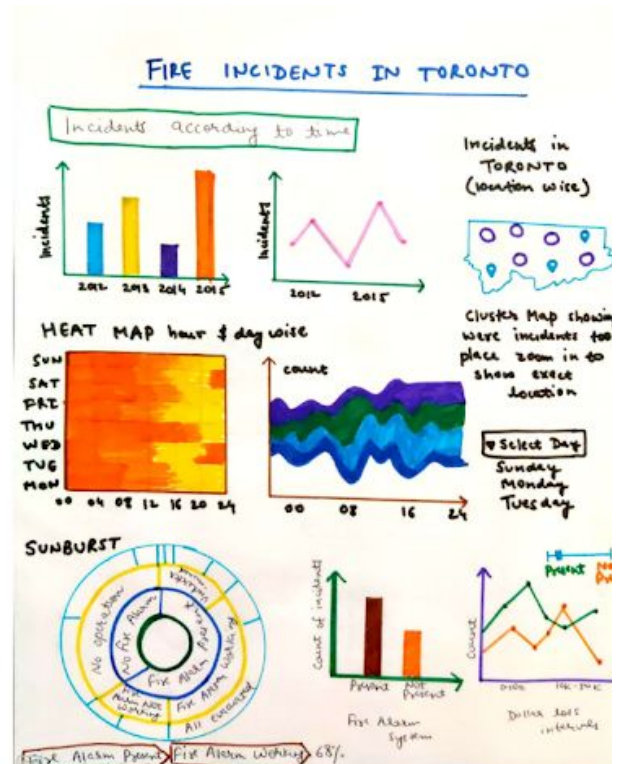 FIRE INCIDENTS IN TORONTO
Incidents according to time
Incidents
2012 2013 2014 2015
Incidents
2012 2015
Incidents in
TORONTO
(location wise)
Cluster Map showin
were incidents too
place zoom in to
show exact
location
HEAT MAP hour & day wise
SUN
SAT
FRI
THU
WED
TUE
MON
00 04 08 12 16 20 24
count
00 08 16 24
▼ Select Day
Sunday
Monday
Tuesday
SUNBURST
No operation
No Fire Alarm
Fire Alarm Present
Fire Alarm Working
Fire Alarm Not Working
All evacuated
Fire Alarm Present
Fire Alarm Working
68%
Count of incidents
Present
Not Present
Fire Alarm
System
Present
Count
Dollar loss
intervals